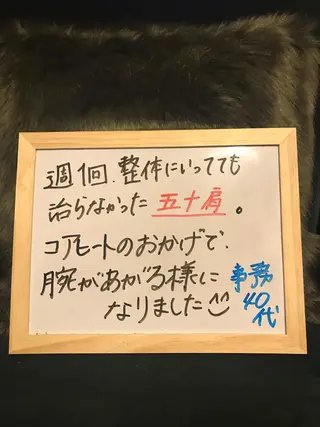 週1回、整体にいってても
治らなかった 五十肩。
コアヒートのおかげで、
腕があがる様に
なりました
事務
40
代